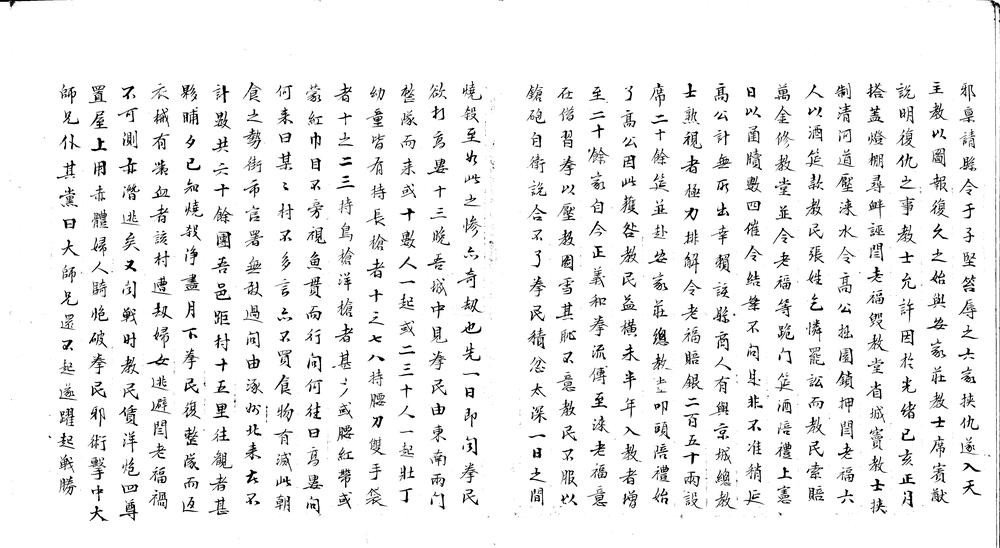 邪臬請縣令于子堅笞辱之六家挾仇遂入天
主教以圖報復久之始與安家莊教士席賓猷
說明復仇之事教士允許因於光緒己亥正月
搭蓋燈棚尋衅誣閆老福毀教堂省城竇教士挾
制清河道壓淶水令高公拙園鎖押閆老福六
人以酒筵款教民張姓乞憐罷訟而教民索賠
萬金修教堂並令老福等跪门筵酒陪禮上憲
日以函牘數四催令結案不问是非不准稍延
高公計無所出幸賴該縣商人有與京城總教
士熟視者極力排解令老福賠銀二百五十兩設
席二十餘筵並赴安家莊總教士叩頭陪禮始
了高公因此獲咎教民益橫未半年入教者增
至二十餘家自今正義和拳流傳至淶老福意
在借習拳以壓教圖雪其恥不意教民不服以
鎗砲自衛說合不了拳民積忿太深一日之間
燒殺至如此之慘亦奇劫也先一日即闻拳民
欲打高婁十三晚吾城中見拳民由東南兩门
整隊而来或十數人一起或二三十人一起壯丁
幼童皆有持長槍者十之七八持腰刀雙手袋
者十之二三持鳥槍洋槍者甚少或腰紅帶或
蒙紅巾目不旁視魚貫而行问何往曰高婁问
何来曰某々村不多言亦不買食物有滅此朝
食之勢街市官署無敢過问由涿州北来去不
計數共六十餘團吾邑距村十五里往觀者甚
夥晡夕已知燒殺淨盡月下拳民復整隊而返
衣械有濺血者該村遭劫婦女逃避閆老福禍
不可測亦潛逃矣又闻戰时教民賃洋炮四尊
置屋上用赤體婦人騎炮破拳民邪術擊中大
師兄仆其黨曰大師兄還不起遂躍起戰勝